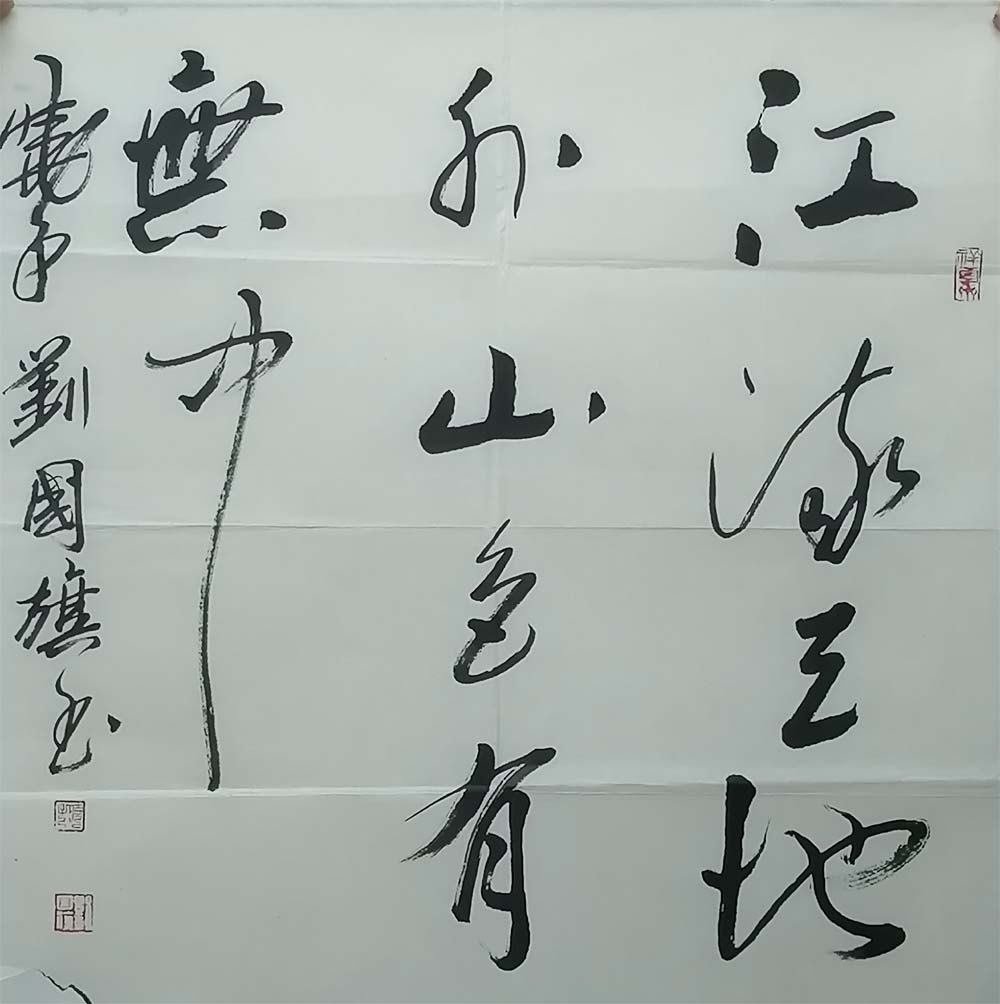 江流天地
外山色有
無中
年劉國旗